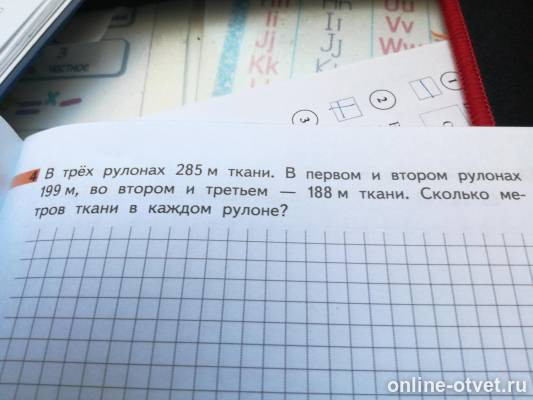 Ii
Jj
Kk
Ii
Jj
Uu
Vv
Ww
3
частное
1
2
3
4 В трёх рулонах 285 м ткани. В первом и втором рулонах
199 м, во втором и третьем — 188 м ткани. Сколько ме-
тров ткани в каждом рулоне?
online-otvet.ru